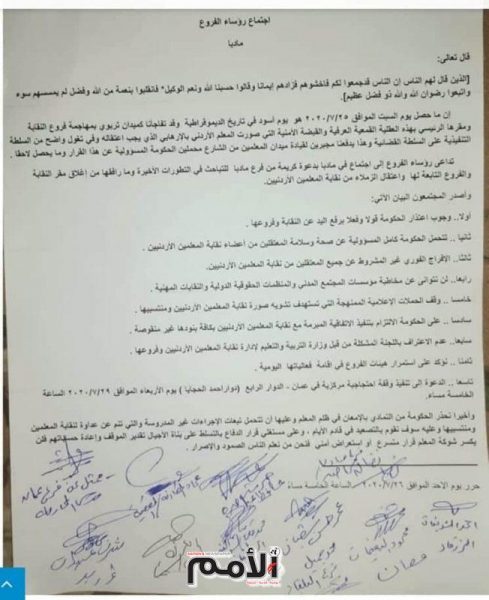 اجتماع رؤساء الفروع
مادبا
قال تعالى:
[الذين قال لهم الناس إن الناس قد جمعوا لكم فاخشوهم فزادهم ايمانا وقالوا حسبنا الله ونعم الوكيل* فانقلبوا بنعمة من الله وفضل لم يمسسهم سوء
واتبعوا رضوان الله والله ذو فضل عظيم].
إن ما حصل يوم السبت الموافق ٢٠٢٠/٧/٢٥ هو يوم أسود في تاريخ الديموقراطية وقد تفاجأنا كميدان تربوي بمهاجمة فروع النقابة
ومقرها الرئيسي بهذه العقلية القمعية العرفية والقبضة الأمنية التي صورت المعلم الأردني بالارهابي الذي يجب اعتقاله وفي تغول واضح من السلطة
التنفيذية على السلطة القضائية وهذا يدفعنا مجبرين لقيادة ميدان المعلمين من الشارع محملين الحكومة المسؤولية عن هذا القرار وما يحصل لاحقا .
تداعى رؤساء الفروع إلى اجتماع في مادبا بدعوة كريمة من فرع مادبا للتباحث في التطورات الأخيرة وما رافقها من إغلاق مقر النقابة
والفروع التابعة لها واعتقال الزملاء من نقابة المعلمين الأردنيين.
وأصدر المجتمعون البيان الآتي:
أولا.. وجوب اعتذار الحكومة قولا وفعلا برفع اليد عن النقابة وفروعها .
ثانيا .. تتحمل الحكومة كامل المسؤولية عن صحة وسلامة المعتقلين من أعضاء نقابة المعلمين الأردنيين .
ثالثا.. الإفراج الفوري غير المشروط عن جميع المعتقلين من نقابة المعلمين الأردنيين.
رابعا.. لن نتوانى عن مخاطبة مؤسسات المجتمع المدني والمنظمات الحقوقية الدولية والنقابات المهنية .
خامسا .. وقف الحملات الإعلامية الممنهجة التي تستهدف تشويه صورة نقابة المعلمين الأردنيين ومنتسبيها .
سادسا .. على الحكومة الالتزام بتنفيذ الاتفاقية المبرمة مع نقابة المعلمين الأردنيين بكافة بنودها غير منقوصة .
سابعا.. عدم الاعتراف باللجنة المشكلة من قبل وزارة التربية والتعليم لإدارة نقابة المعلمين الأردنيين وفروعها .
ثامنا .. نؤكد على استمرار هيئات الفروع في اقامة فعالياتها اليومية .
تاسعا .. الدعوة الى تنفيذ وقفة احتجاجية مركزية في عمان - الدوار الرابع (دوار احمد الحجايا ) يوم الأربعاء الموافق ٢٠٢٠/٧/٢٩ الساعة
الخامسة مساء.
وأخيرا نحذر الحكومة من التمادي بالإمعان في ظلم المعلم وعليها أن تتحمل تبعات الإجراءات غير المدروسة والتي تنم عن عداوة لنقابة المعلمين
ومنتسبيها وعليه سوف نقوم بالتصعيد في قادم الأيام . وعلى مستغلي قرار الدفاع بالتسلط على بناة الأجيال تقدير الموقف وإعادة حساباتهم فلن
يكسر شوكة المعلم قرار متسرع او استعراض أمني فنحن من نعلم الناس الصمود والإصرار .
حرر يوم الاحد الموافق ٢٠٢٠/٧/٢٦ الساعة الخامسة مساء
الأمم